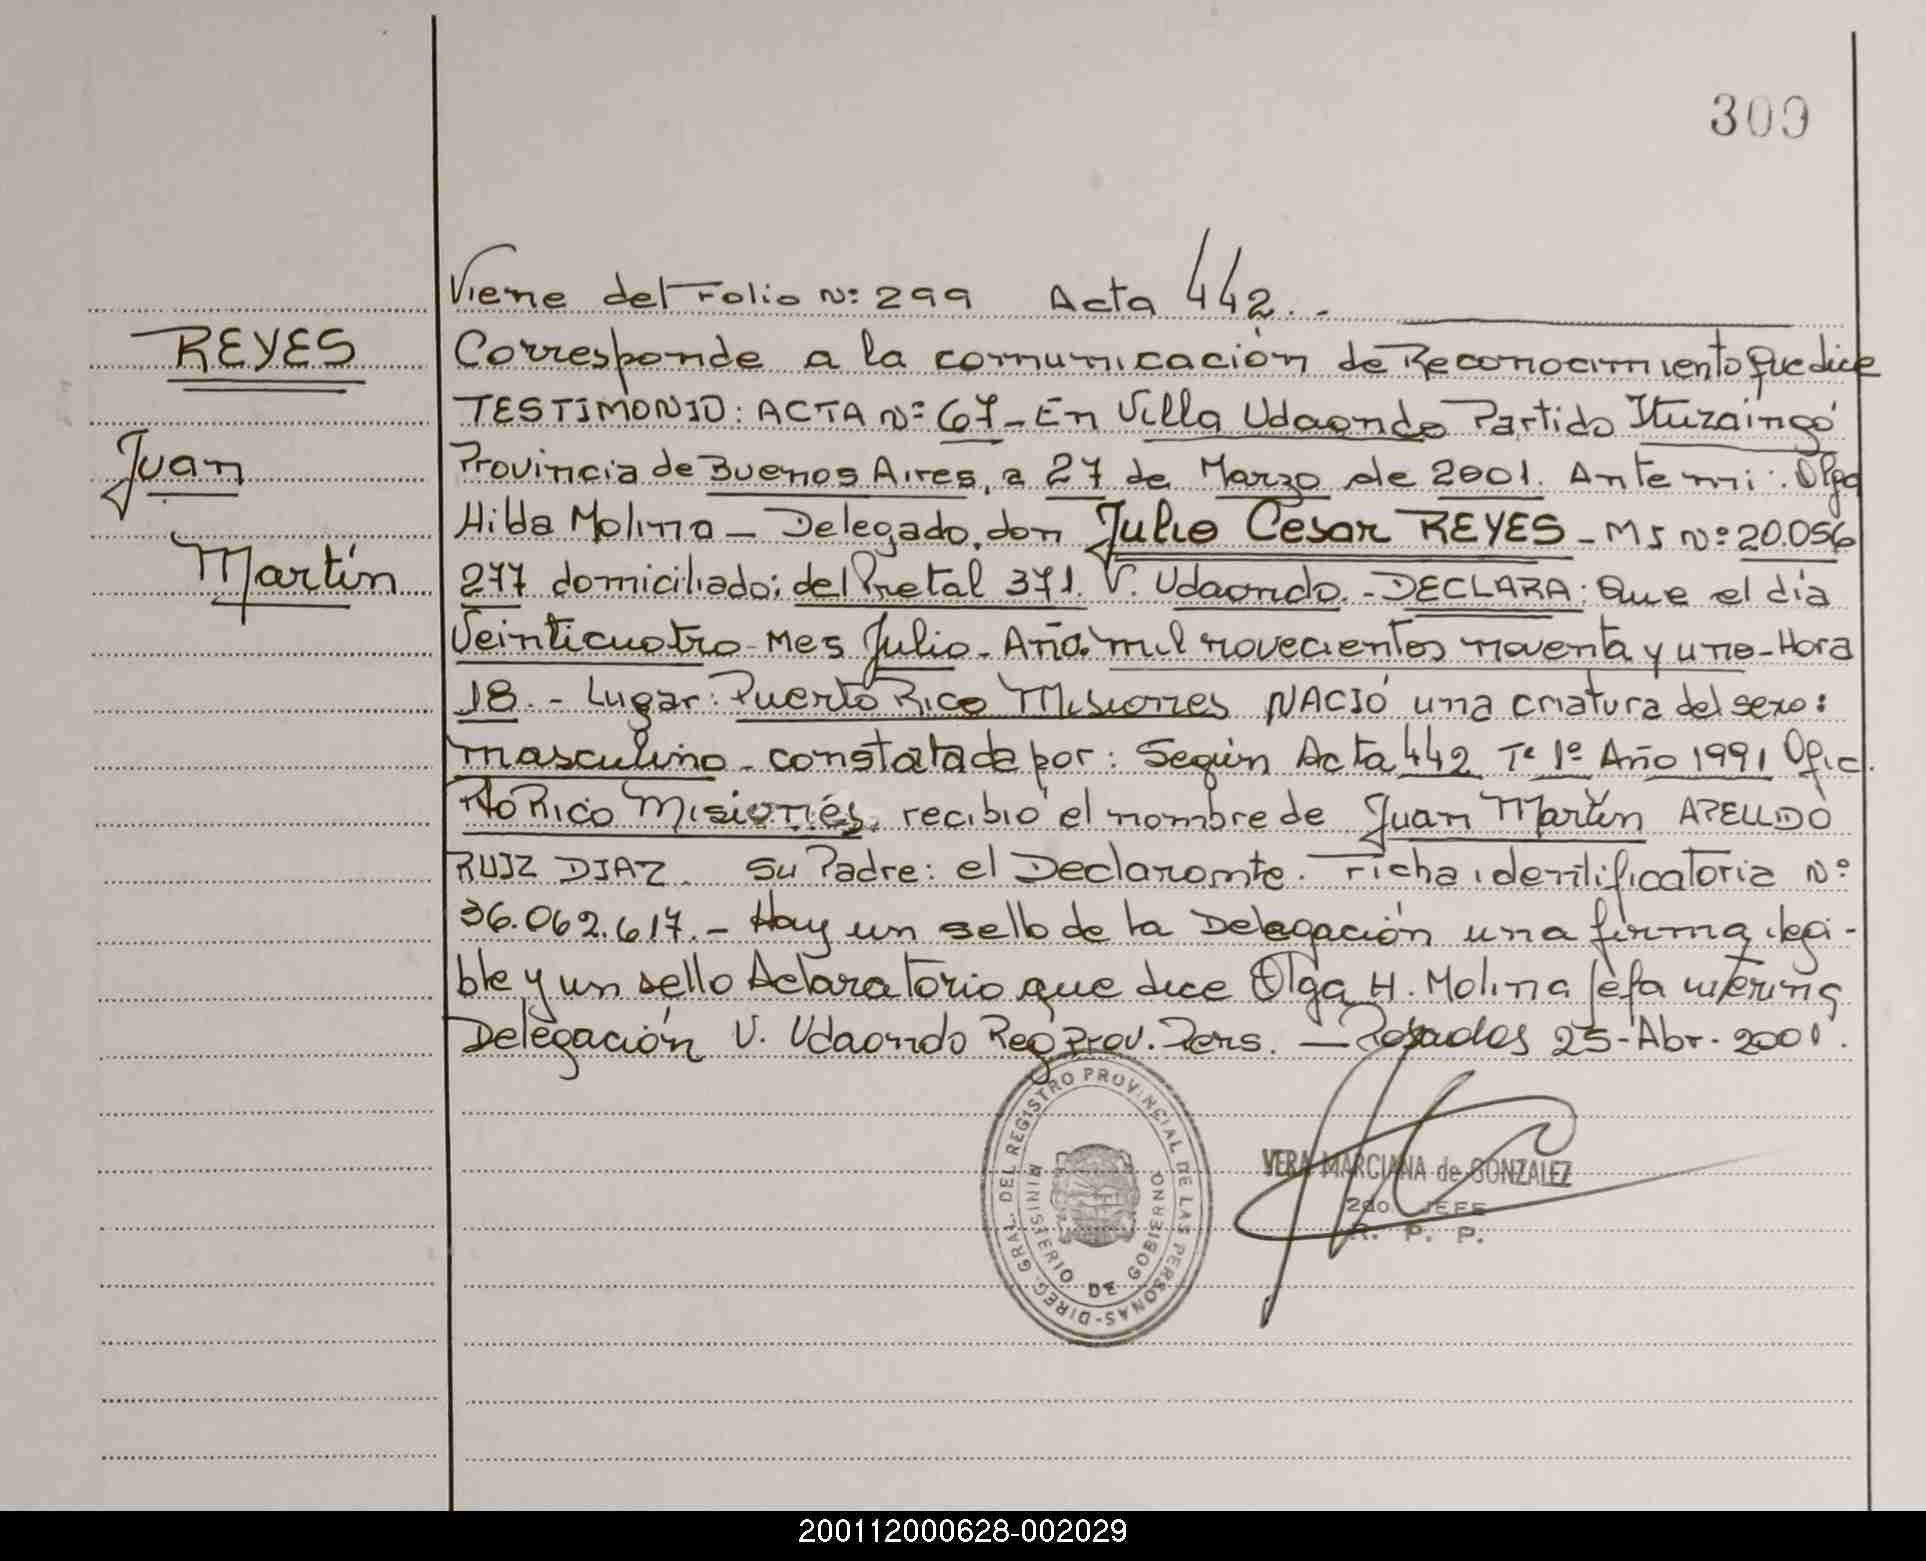 309
Viene del Folio Nº 299 Acta 442.-
REYES
Juan
Martín
Corresponde a la comunicación de Reconocimiento que dice
TESTIMONIO: ACTA Nº 67 - En Villa Udaondo Partido Ituzaingó
Provincia de Buenos Aires, a 27 de Marzo de 2001. Ante mi: Olga
Hilda Molina - Delegado, don Julio Cesar REYES - MI Nº 20.056
277 domiciliado: del Pretal 371. V. Udaondo. - DECLARA: Que el día
Veinticuatro - Mes Julio - Año mil novecientos noventa y uno - Hora
18. - Lugar: Puerto Rico Misiones NACIÓ una criatura del sexo:
masculino - constatada por: Según Acta 442 Tº 1º Año 1991 Ofic.
Pto Rico Misiones, recibió el nombre de Juan Martín APELLIDO
RUIZ DIAZ. Su Padre: el Declarante. Ficha identificatoria Nº
36.062.617. - Hay un sello de la Delegación una firma ilegi-
ble y un sello Aclaratorio que dice Olga H. Molina Jefa interina
Delegación V. Udaondo Reg Prov. Pers. - Posadas 25-Abr-2001.
DIREC. GRAL. DEL REGISTRO PROVINCIAL DE LAS PERSONAS -
MINISTERIO DE GOBIERNO
VERA MARCIANA de GONZALEZ
2do. JEFE
R. P. P.
200112000628-002029